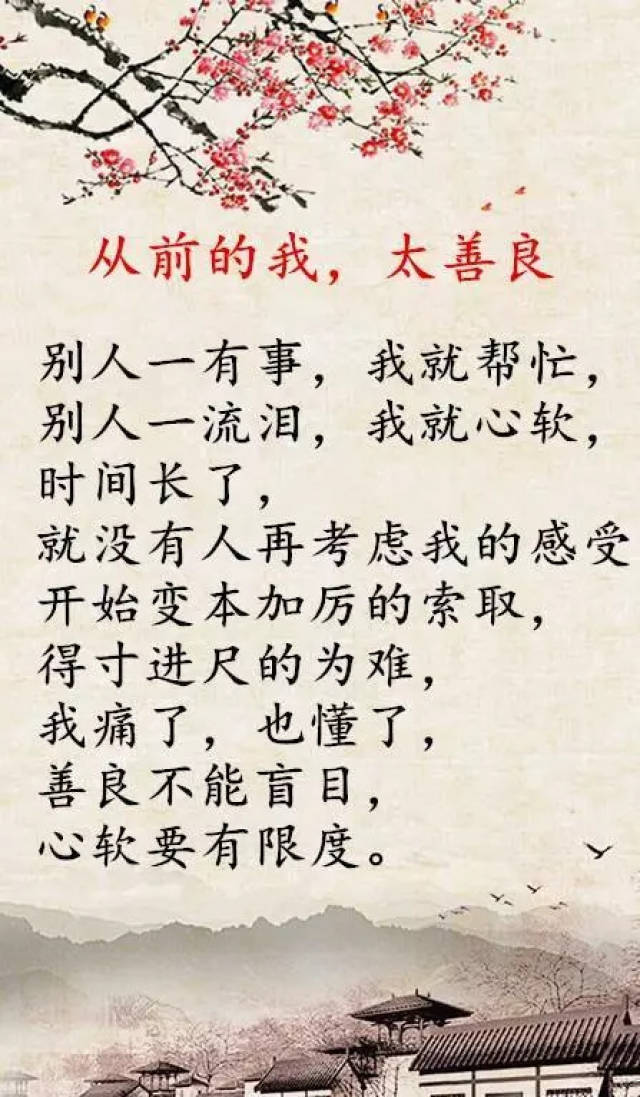 从前的我，太善良
别人一有事，我就帮忙，
别人一流泪，我就心软，
时间长了，
就没有人再考虑我的感受
开始变本加厉的索取，
得寸进尺的为难，
我痛了，也懂了，
善良不能盲目，
心软要有限度。